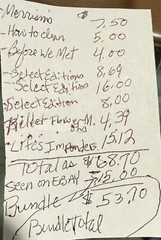 - Morrison's 7.50
- How to clean 5.00
- Before We Met 4.00
- Select Editions 8.69
- Select Edition 16.00
- Select Edition 8.00
4.39
- Lites 15.12
Total as $68.70
Seen on EBAY - 15.00
Bundle $53.70
Bundle Total